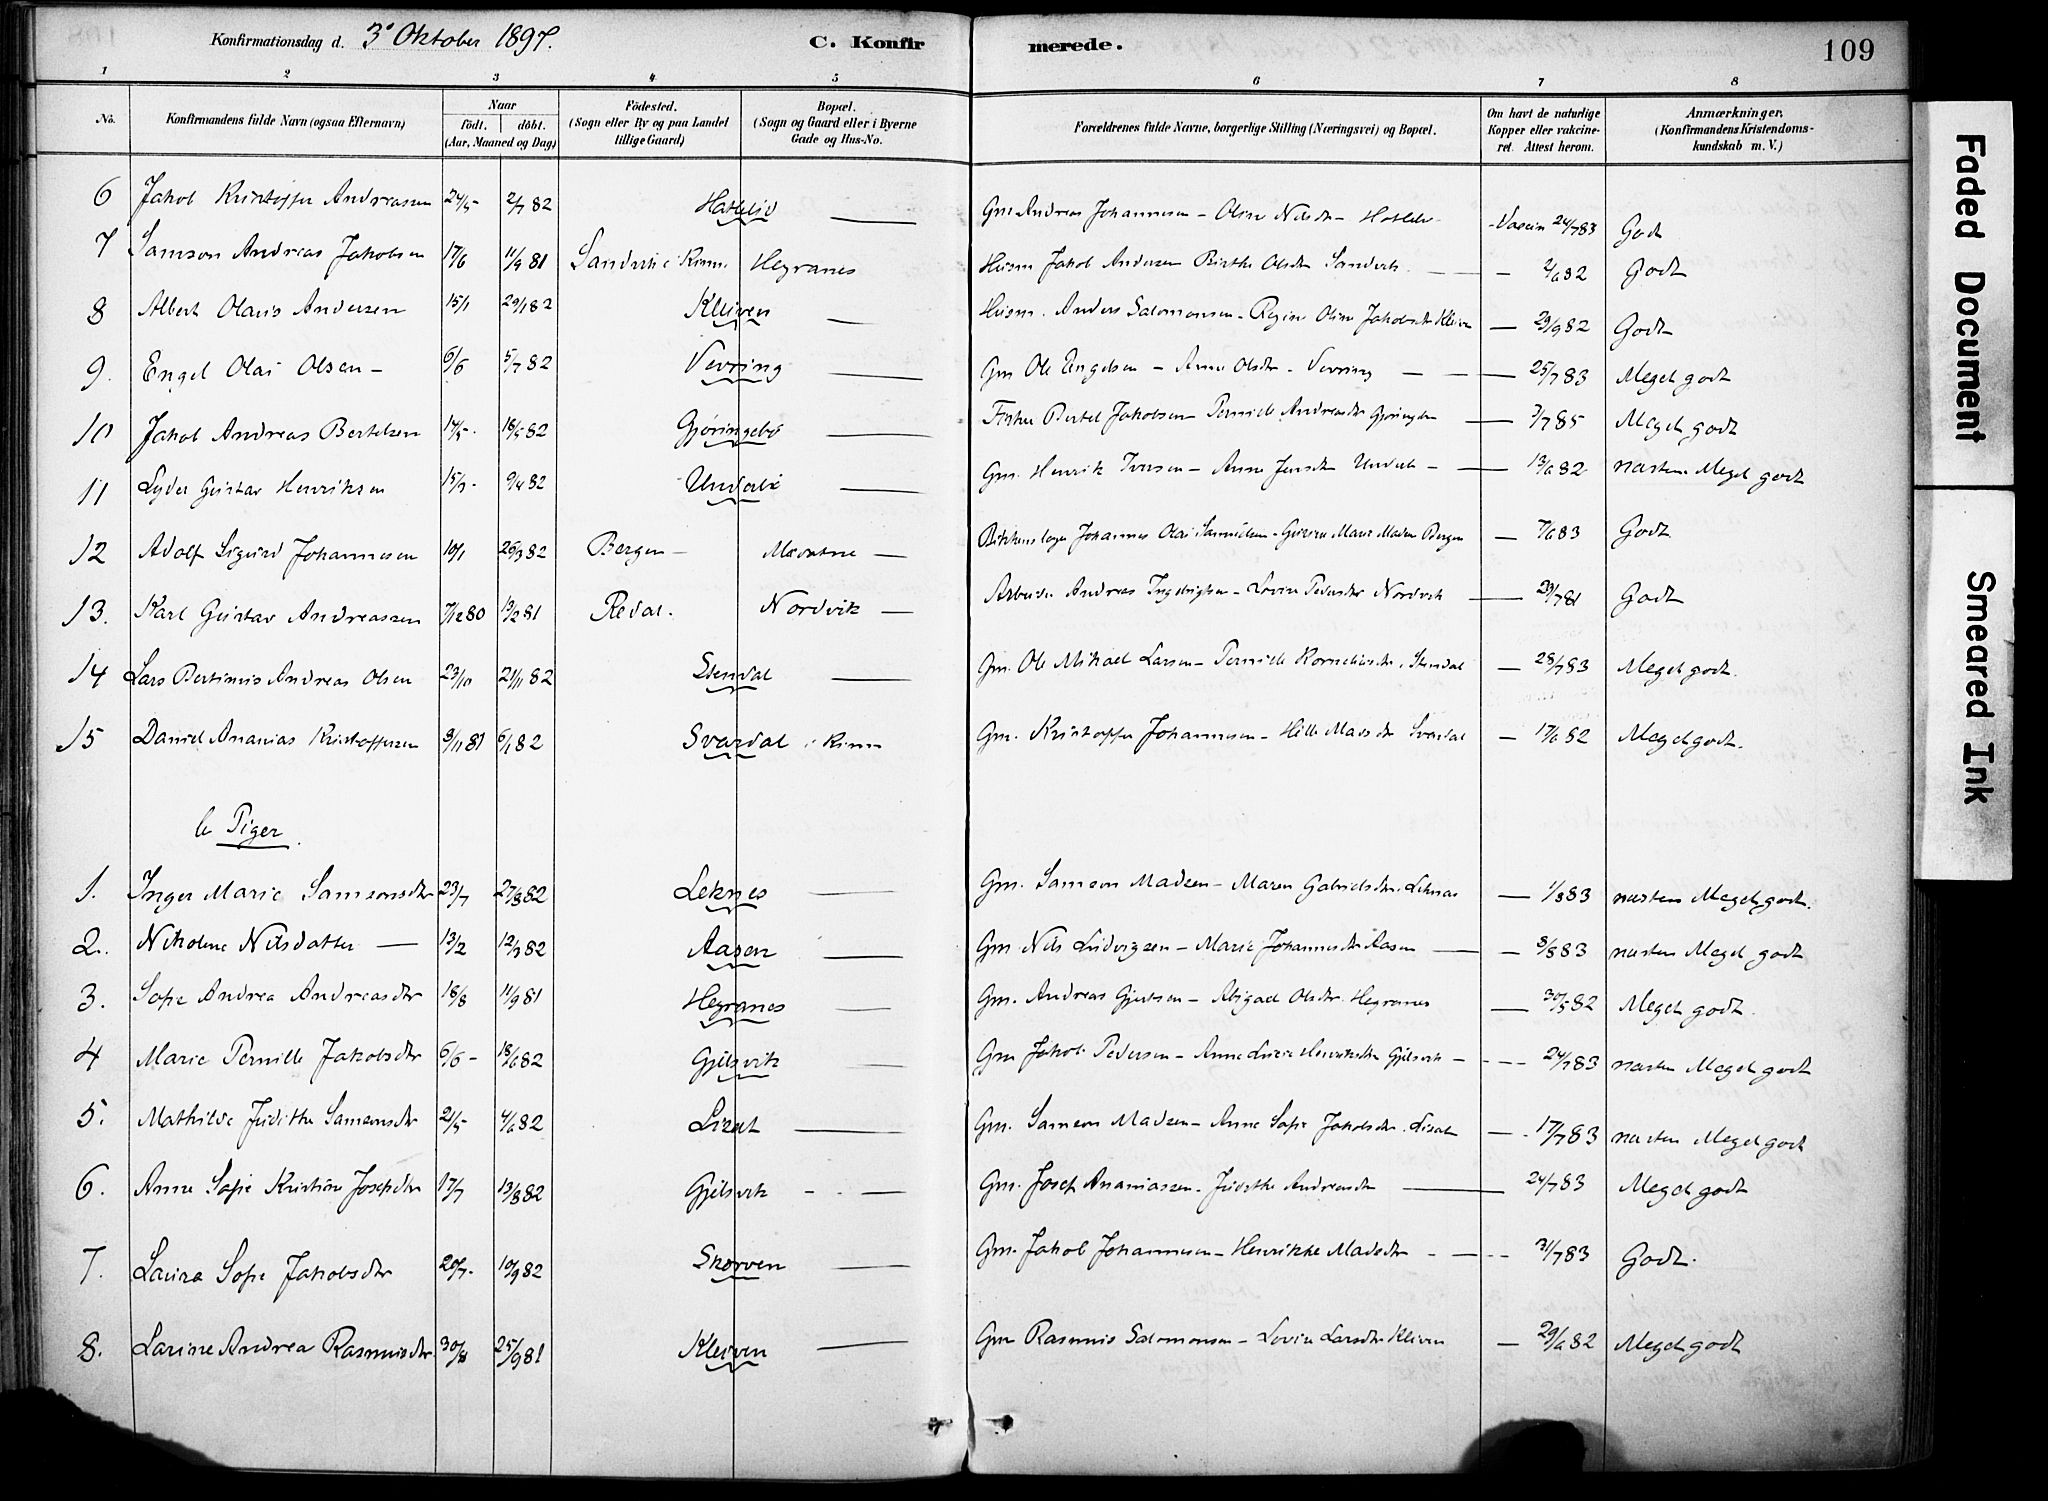 Konfirmationsdag d. 3º Oktober 1897. C. Konfirmerede. 109
1 2 3 4 5 6 7 8
No. Konfirmandens fulde Navn (ogsaa Efternavn) Naar födt. döbt. (Aar, Maaned og Dag) Födested. (Sogn eller By og paa Landet tillige Gaard) Bopæl. (Sogn og Gaard eller i Byerne Gade og Hus-No. Forældrenes fulde Navne, borgerlige Stilling (Næringsvei) og Bopæl. Om havt de naturlige Kopper eller vakcineret. Attest herom. Anmærkninger, (Konfirmandens Kristendomskundskab m. V.)
6 Jakob Kristoffer Andreassen 24/5 2/7 82 Gm Andreas Johannesen - Oline Nilsdtr - 24/7 83 Godt
7 Samson Andreas Jakobsen 17/6 11/9 81 Sandvik i Kinn. Hegranes Husm Jakob Andersen Birthe Olsdtr Sandvik - 2/6 82 Godt
8 Albert Olaus Andersen 15/1 29/1 82 Kleiven — Husm. Anders Salomonsen - Regine Oline Jakobsdtr Kleiven — 29/9 82 Godt
9. Engel Olai Olsen - 6/6 5/7 82 Vevring — Gm Ole Engelsen - Anne Olsdtr - Vevring — 25/7 83 Meget godt
10 Jakob Andreas Bertelsen 14/5 18/5 82 Gjøringebø — Fisker Bertel Jakobsen - Pernille Andreasdtr — 7/7 85 Meget godt
11 Lyder Gustav Henriksen 15/3 9/4 82 — Gm. Henrik Iversen - Anne Jensdtr — 13/6 82 næsten Meget godt
12 Adolf Sigurd Johannesen 10/1 26/3 82 Bergen - — Johannes Olai Samuelsen - Marie Madsen Bergen — 7/6 83 Godt
13. Karl Gustav Andreassen 7/12 80 13/2 81 Redal. Nordvik — Arbeider Andreas Ingebrigtsen - Lovise Pedersdtr Nordvik — 29/7 81 Godt
14 Lars Bertinius Andreas Olsen 23/10 21/11 82 Stendal — Gm. Ole Mikael Larsen - Pernille Korneliusdtr. Stendal — 28/7 83 Meget godt.
15 Daniel Ananias Kristoffersen 9/11 81 6/1 82 Svardal i Kinn Gm. Kristoffer Johannesen - Hille Madsdtr Svardal — 17/6 82 Meget godt.
b Piger.
1. Inger Marie Samsonsdtr 23/7 27/8 82 Leknes — Gm. Samson Madsen - Maren Gabrielsdtr. Leknes — 1/8 83 næsten Meget godt.
2. Nikoline Nilsdatter — 13/2 12/3 82 Aasen — Gm. Nils Ludvigsen - Marie Johannesdtr Aasen — 8/8 83 næsten Meget godt
3. Sofie Andrea Andreasdtr 18/8 11/9 81 Hegranes — Gm. Andreas Gjertsen - Abigael Olsdtr. Hegranes — 30/5 82 Meget godt.
4 Marie Pernille Jakobsdtr 6/6 - 18/6 82 Gjelsvik — Gm Jakob Pedersen - Anne Henriksdtr Gjelsvik - 24/7 83 næsten Meget godt
5. Mathilde Judithe Samsonsdtr 21/5 4/6 82 Liset — Gm. Samson Madsen - Anne Sofie Jakobsdtr. Liset — 17/7 83 næsten Meget godt
6. Anne Sofie Kristine Josefsdtr 17/7 13/8 82 Gjelsvik — Gm. Josef Ananiassen - Judithe Andreasdtr — 24/7 83 Meget godt
7. Laura Sofie Jakobsdtr 20/7 10/9 82 Skorven — Gm. Jakob Johannesen - Henrikke Madsdtr — 31/7 83 Godt.
8. Larine Andrea Rasmusdtr 30/8 25/9 81 Kleiven — Gm Rasmus Salomonsen - Lovise Larsdtr Kleiven — 29/6 82 Meget godt
Faded Document
Smeared Ink